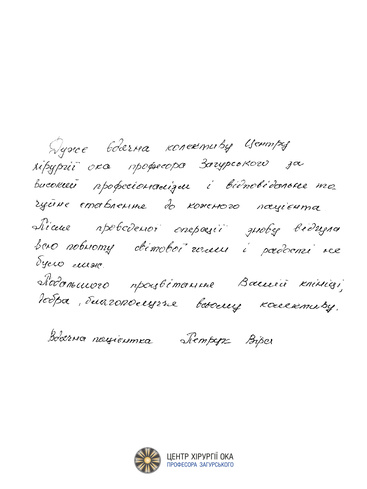 Дуже вдячна колективу Центру
хірургії ока професора Загурського за
високий професіоналізм і відповідальне та
чуйне ставлення до кожного пацієнта
Після проведеної операції знову відчула
всю повноту світової гами і радості не
було меж.
Подальшого процвітання Вашій клініці,
добра, благополуччя всьому колективу.
Вдячна пацієнтка Петрук Віра
ЦЕНТР ХІРУРГІЇ ОКА
ПРОФЕСОРА ЗАГУРСЬКОГО